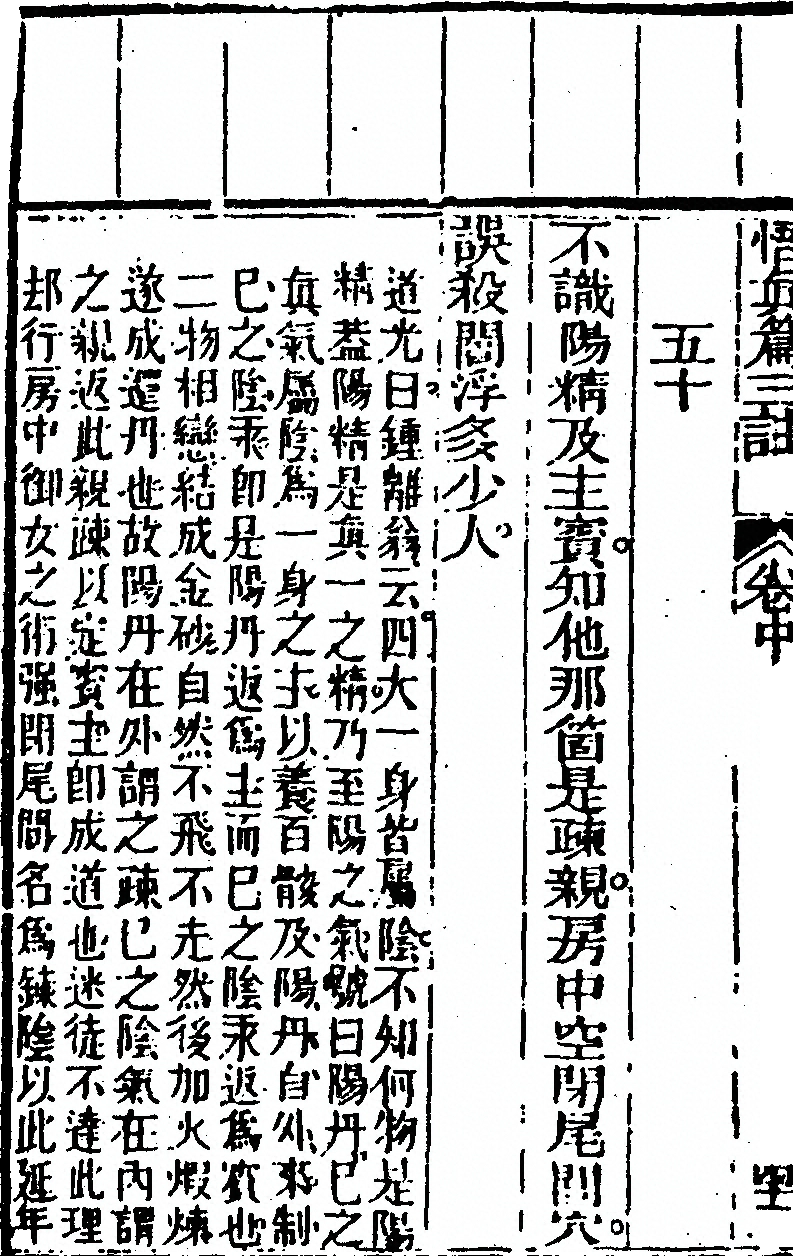 悟真篇三註 卷中
五十
不識陽精及主賓知他那箇是疎親房中空閉尾閭穴
誤殺閻浮多少人
道光曰鍾離翁云四大一身皆屬陰不知何物是陽
精蓋陽精是真一之精乃至陽之氣號曰陽丹已之
真氣屬陰為一身之主以養百骸及陽丹自外來制
已之陰汞即是陽丹返為主而已之陰汞返為賓也
二物相戀結成金砂自然不飛不走然後加火煆煉
遂成還丹也故陽丹在外謂之疎已之陰氣在內謂
之親返此親疎以定賓主即成道也迷徒不達此理
却行房中御女之術强閉尾閭名為鍊陰以此延年